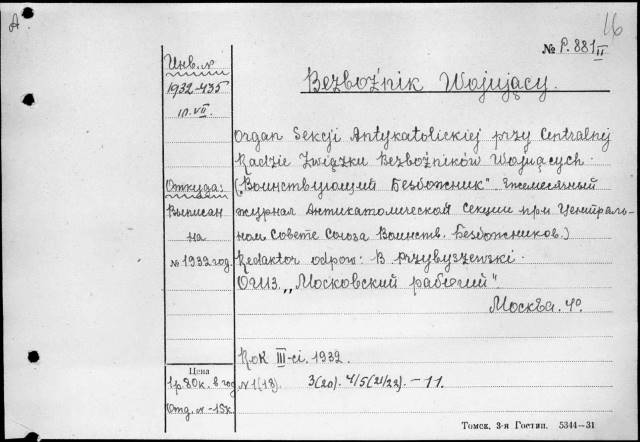 А
16
№ P. 881 II
Инв. №
1932-435
in. VII.
Bezbożnik Wojujący.
Organ Sekcji Antykatolickiej przy Centralnej
Radzie Związku Bezbożników Wojujących.
("Воинствующий Безбожник" Ежемесячный
журнал Антикатолической секции при Централь-
ном Совете Союза Воинств. Безбожников.)
Redaktor odpow: B. Przybyszewski.
ОГИЗ. „Московский рабочий".
Москва. 4º.
Откуда:
Выписан
на
№ 1932 год.
Rok III-ci. 1932.
№ 1(18). 3(20). 4/5(21/22). – 11.
Цена
1 р. 80 к. в год
Отд. № -15к.
Томск, 3-я Гостип. 5344—31